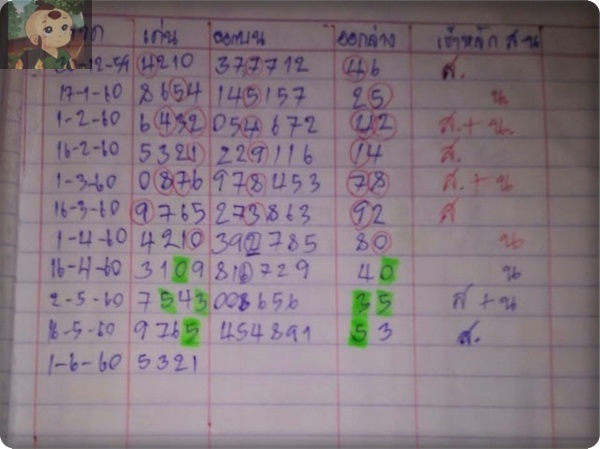 เด่น ออกบน ออกล่าง เข้าหลัก ส-น
-12-59 4210 377712 46 ส.
17-1-60 8654 145157 25 น
1-2-60 6432 054672 42 ส.+น
16-2-60 5321 229116 14 ส.
1-3-60 0876 978453 78 ส.+น
16-3-60 9765 273863 92 ส
1-4-60 4210 392785 80 น
16-4-60 3109 816729 40 น
2-5-60 7543 008656 35 ส+น
-5-60 9765 454891 53 ส.
1-6-60 5321